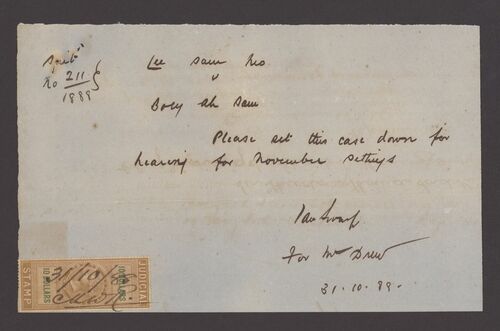 No 211
1889
Lee Sam Keo
v
Boey Ah Sam
Please set this case down for
hearing for November settings
For Mr Drew
31.10.89.
31/10/89
JUDICIAL
10 DOLLARS
10 DOLLARS
STAMP